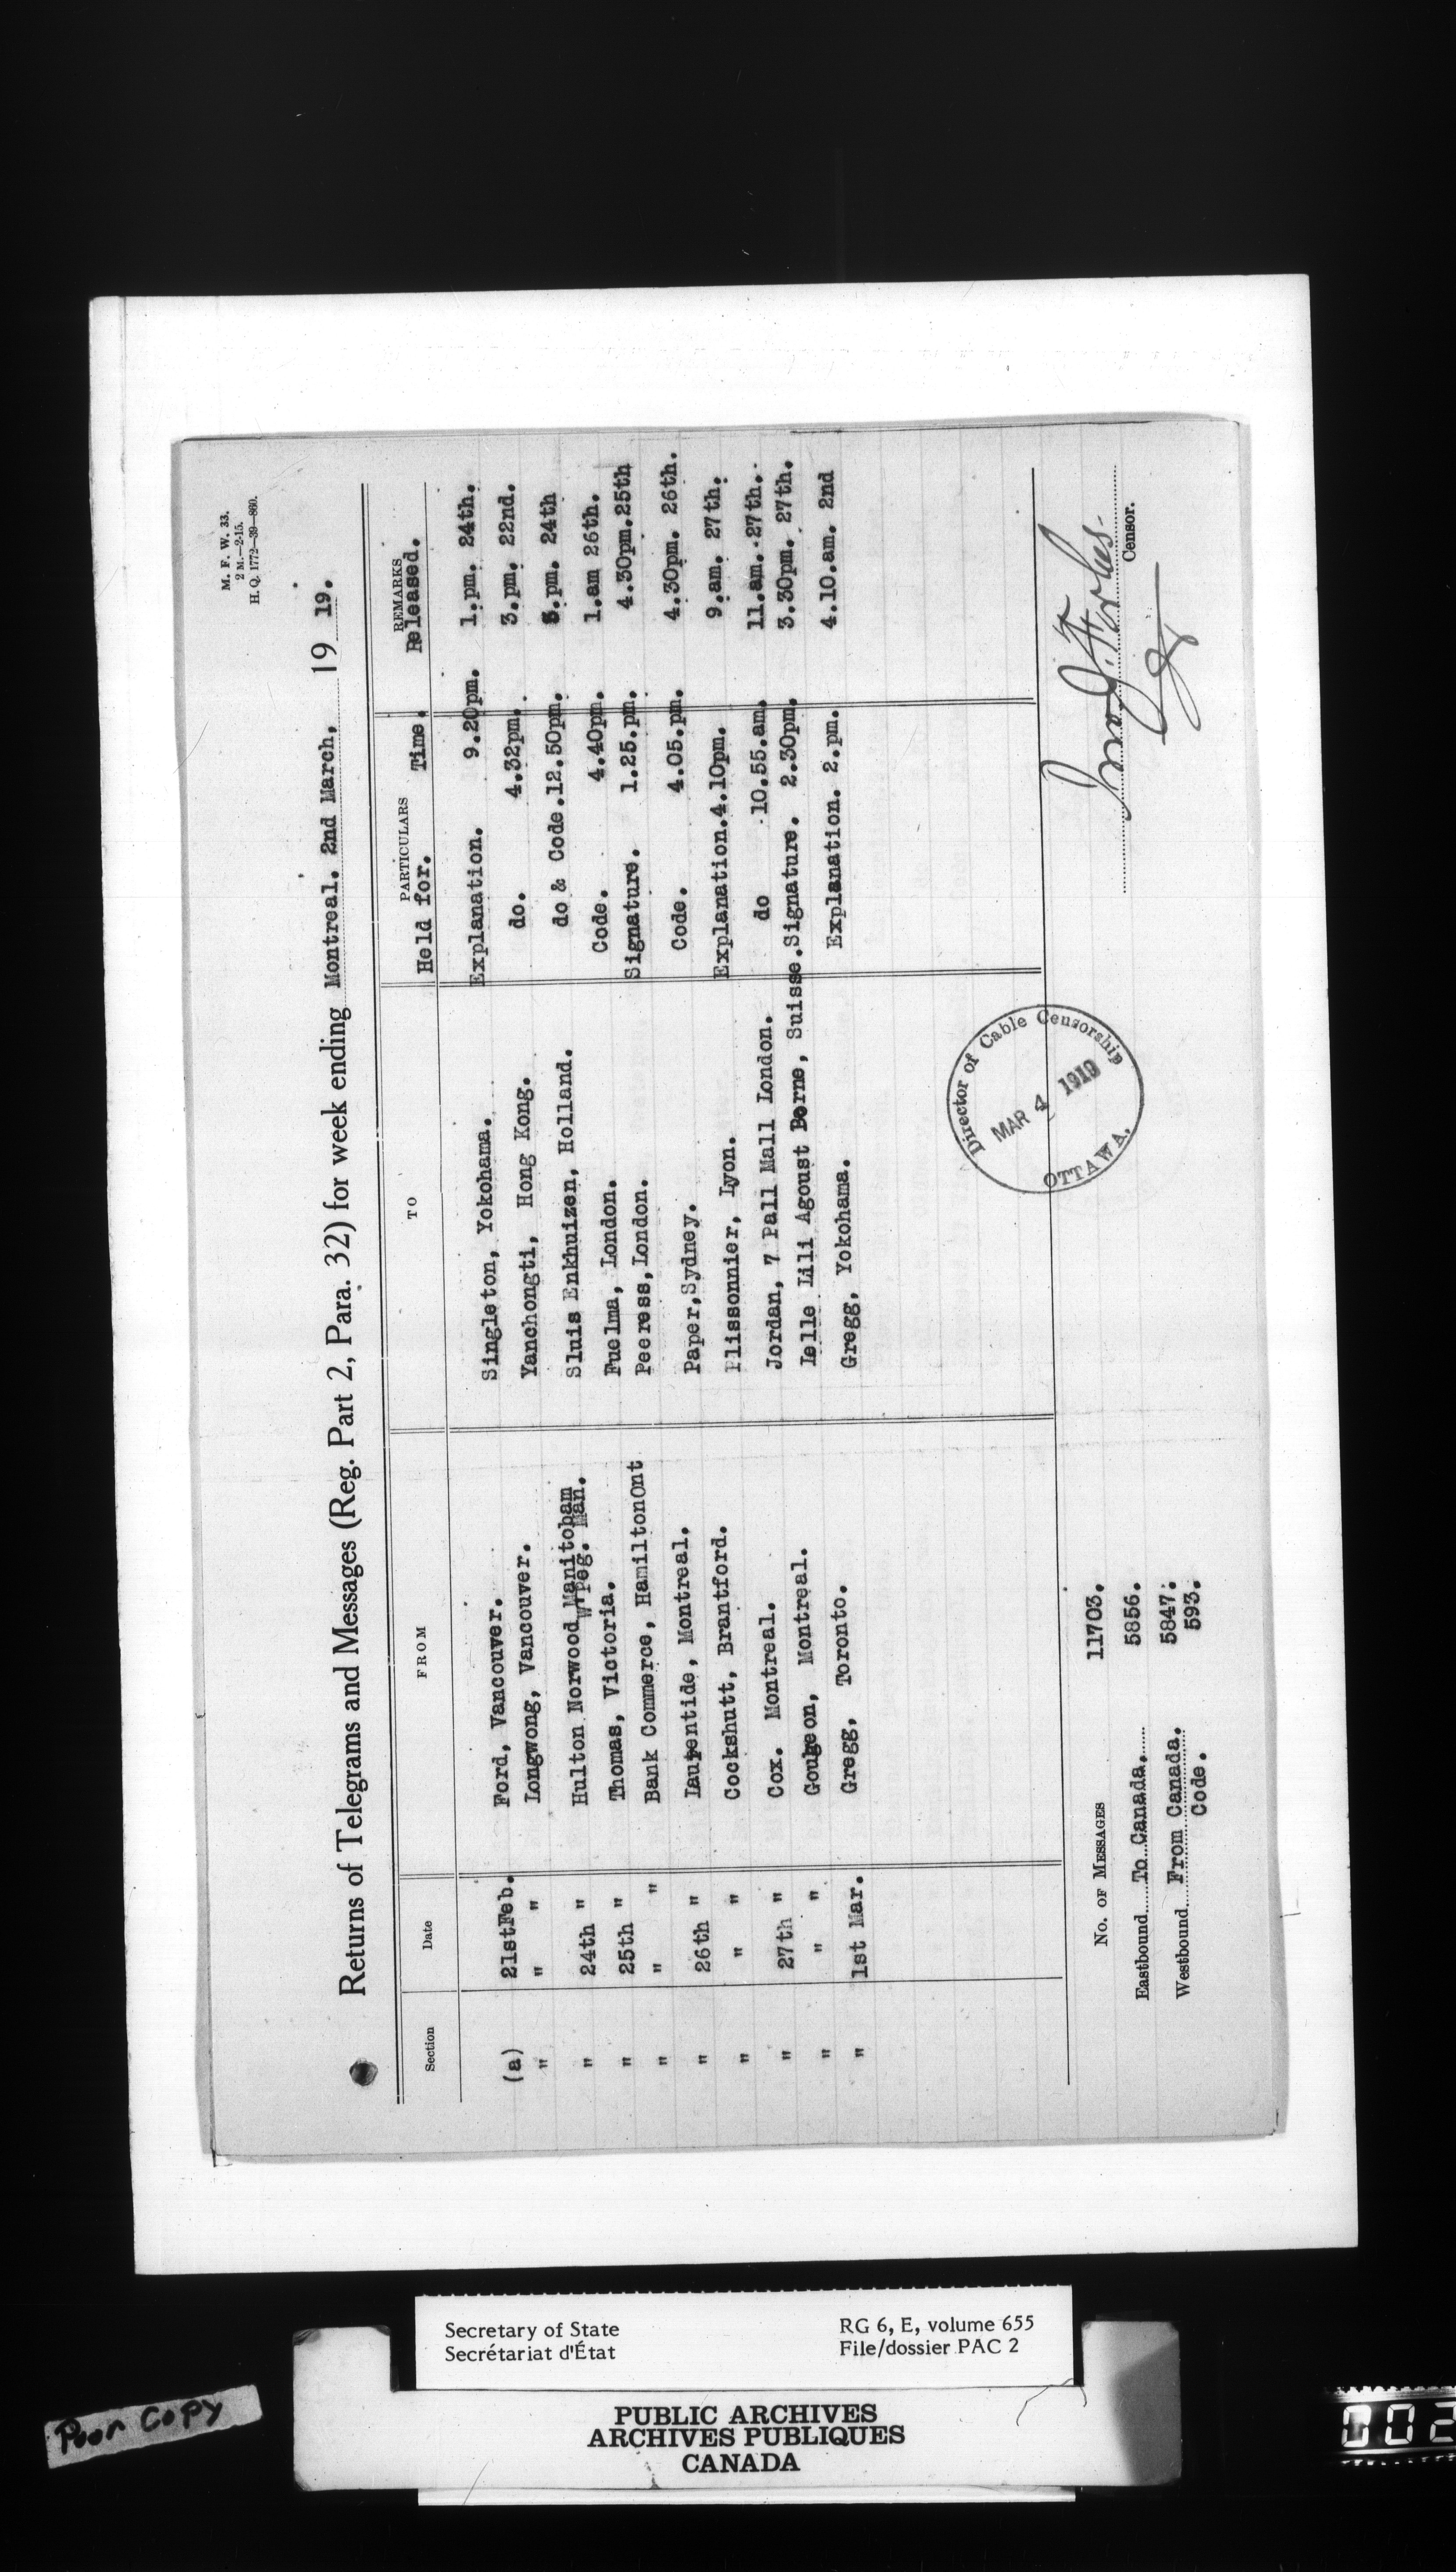 M. F. W. 33.
2 M.—2-15.
H. Q. 1772—39—860.
Returns of Telegrams and Messages (Reg. Part 2, Para. 32) for week ending Montreal. 2nd March, 19 19.
Section Date FROM TO PARTICULARS REMARKS
Held for. Time. Released.
(a) 21stFeb. Ford, Vancouver. Singleton, Yokohama. Explanation. 9.20pm. 1.pm. 24th.
" " " Longwong, Vancouver. Yanchongti, Hong Kong. do. 4.32pm. 3.pm. 22nd.
" 24th " Hulton Norwood Manitobam Sluis Enkhuizen, Holland. do & Code.12.50pm. .pm. 24th
W'Peg. Man.
" 25th " Thomas, Victoria. Fuelma, London. Code. 4.40pm. 1.am 26th.
" " " Bank Commerce, HamiltonOnt Peeress,London. Signature. 1.25.pm. 4.30pm.25th
" 26th " Laurentide, Montreal. Paper,Sydney. Code. 4.05.pm. 4.30pm. 26th.
" " " Cockshutt, Brantford. Plissonnier, Lyon. Explanation.4.10pm. 9.am. 27th.
" 27th " Cox. Montreal. Jordan, 7 Pall Mall London. do 10.55.am. 11.am. 27th.
" " " Montreal. Lelle Lili Agoust Berne, Suisse.Signature. 2.30pm. 3.30pm. 27th.
" 1st Mar. Gregg, Toronto. Gregg, Yokohama. Explanation. 2.pm. 4.10.am. 2nd
No. of Messages 11703.
Eastbound To Canada. 5856.
Westbound From Canada. 5847.
Code. 593.
Director of Cable Censorship
MAR 4 1919
OTTAWA.
Forbes
Censor.
Secretary of State
Secrétariat d'État
RG 6, E, volume 655
File/dossier PAC 2
Poor Copy
PUBLIC ARCHIVES
ARCHIVES PUBLIQUES
CANADA
002